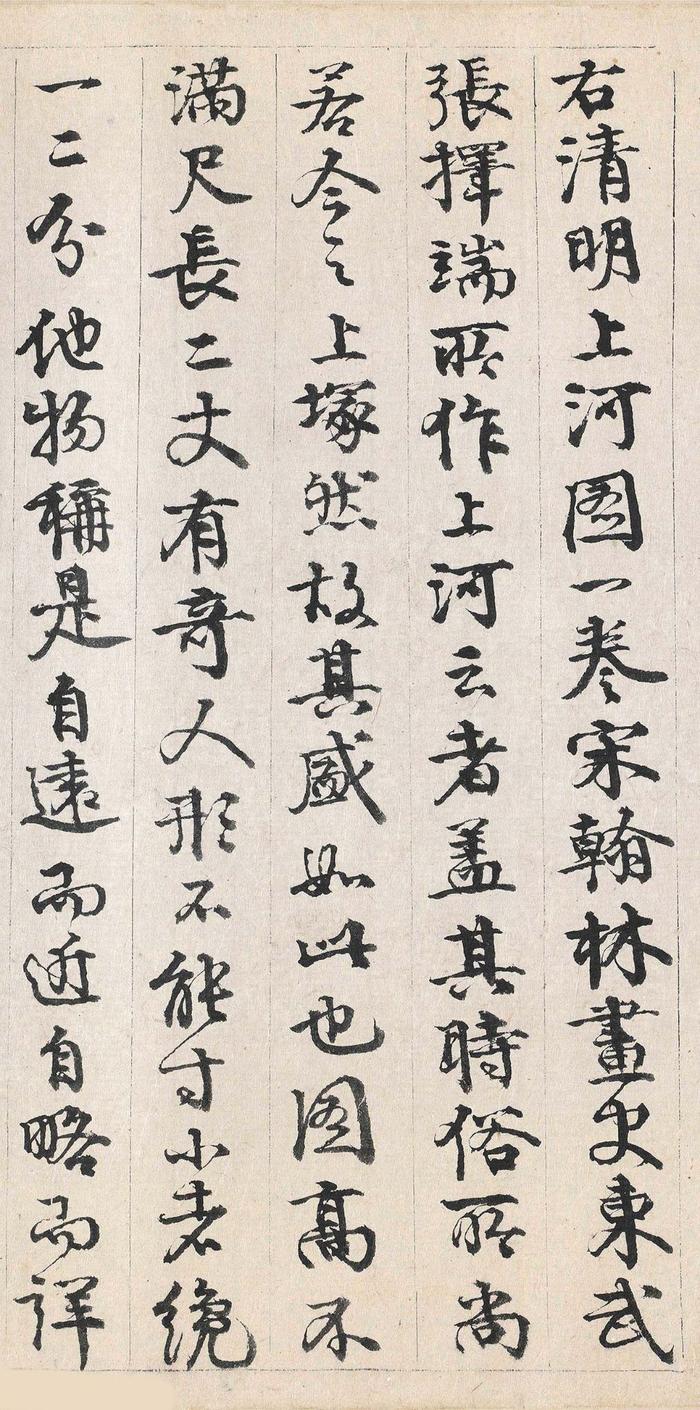 右清明上河图一卷宋翰林畫史東武
張擇端所作上河云者盖其時俗所尚
若今之上塚然故其盛如此也图高不
滿尺長二丈有奇人形不能寸小者纔
一二分他物稱是自遠而近自略而詳